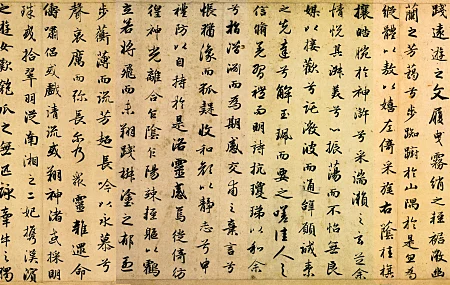 踐遠遊之文履曳霧綃之輕裾微幽
蘭之芳藹兮步踟躕於山隅於是忽焉
縱體以敖以嬉左倚采旄右蔭桂旗
攘皓腕於神滸兮采湍瀨之玄芝余
情悅其淑美兮心振蕩而不怡無良
媒以接歡兮託微波以通辭願誠素
之先達兮解玉珮而要之嗟佳人之
信脩羌習禮而明詩抗瓊珶以和余
兮指潛淵而為期感交甫之棄言兮
悵猶豫而狐疑收和顏以靜志兮申
禮防以自持於是洛靈感焉徙倚彷
徨神光離合乍陰乍陽竦輕軀以鶴
立若將飛而未翔踐椒塗之郁烈
步蘅薄而流芳超長吟以永慕兮
聲哀厲而彌長爾乃衆靈雜遝命
儔嘯侶或戲清流或翔神渚或採明
珠或拾翠羽從南湘之二妃攜漢濱
之遊女歎匏瓜之無匹詠牽牛之獨